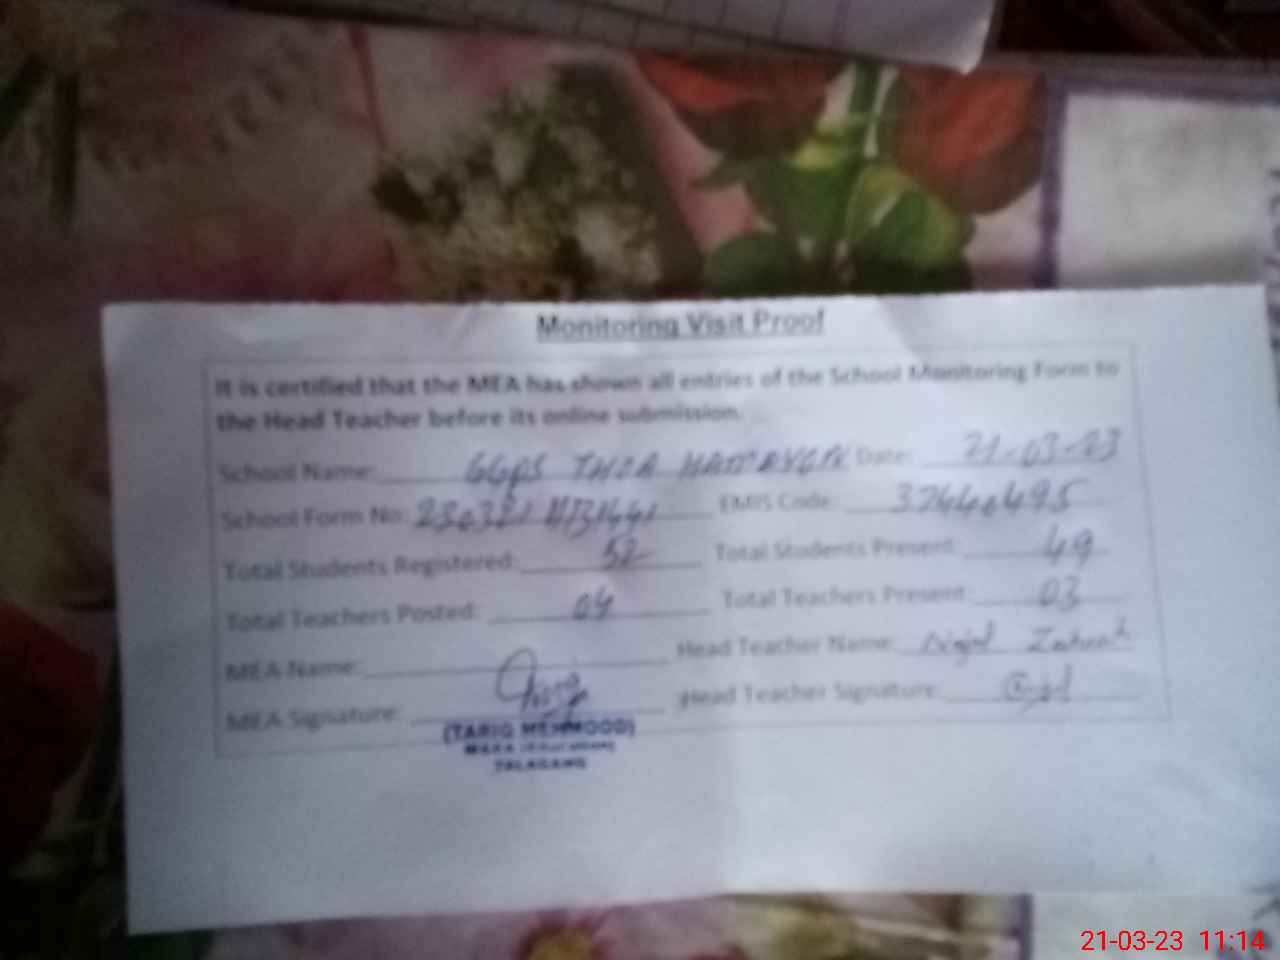 Monitoring Visit Proof
It is certified that the MEA has shown all entries of the School Monitoring Form to
the Head Teacher before its online submission.
School Name: GGPS THOA Date: 21-03-23
School Form No: EMIS Code: 37440495
Total Students Registered: 52 Total Students Present: 49
Total Teachers Posted: 04 Total Teachers Present: 03
MEA Name: Head Teacher Name:
MEA Signature: Head Teacher Signature:
(TARIQ MEHMOOD)
TALAGANG
21-03-23 11:14